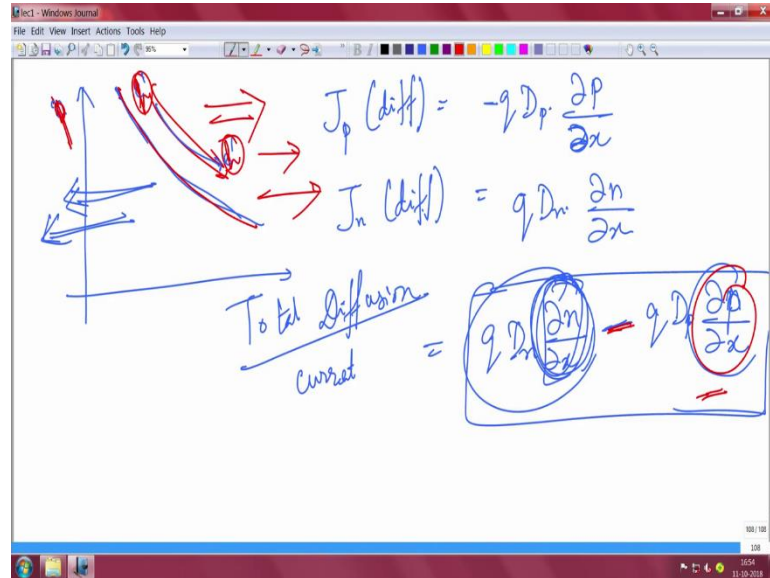 lec1 - Windows Journal
File Edit View Insert Actions Tools Help
95%
B I
p
h
h
J_p (diff) = -q D_p · ∂p/∂x
J_n (diff) = q D_n · ∂n/∂x
Total Diffusion current = q D_n ∂n/∂x - q D_p ∂p/∂x
108 / 108
108
16:54
11-10-2018